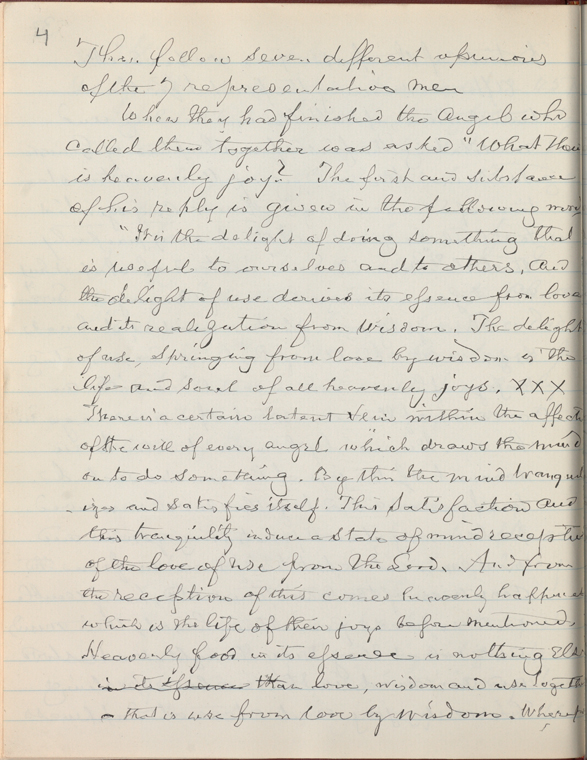 4
Then follow seven different opinions
of the 7 representative men
When they had finished the Angel who
called them together was asked "What then
is heavenly joy? The first and substance
of his reply is given in the following word
"It is the delight of doing something that
is useful to ourselves and to others, and
the delight of use derives its essence from love
and its realization from wisdom. The delight
of use, springing from love by wisdom is the
life and soul of all heavenly joys. XXX
There is a certain latent vein within the affecti
of the will of every angel which draws the mind
on to do something. By this the mind tranquil
izes and satisfies itself. This satisfaction and
this tranquility induce a state of mind receptiv
of the love of use from the Lord. And from
the reception of this comes heavenly happines
which is the life of their joys before mentioned.
Heavenly food in its essence is nothing Els
in its essence than love, wisdom and use togeth
- that is use from love by wisdom. Wheref